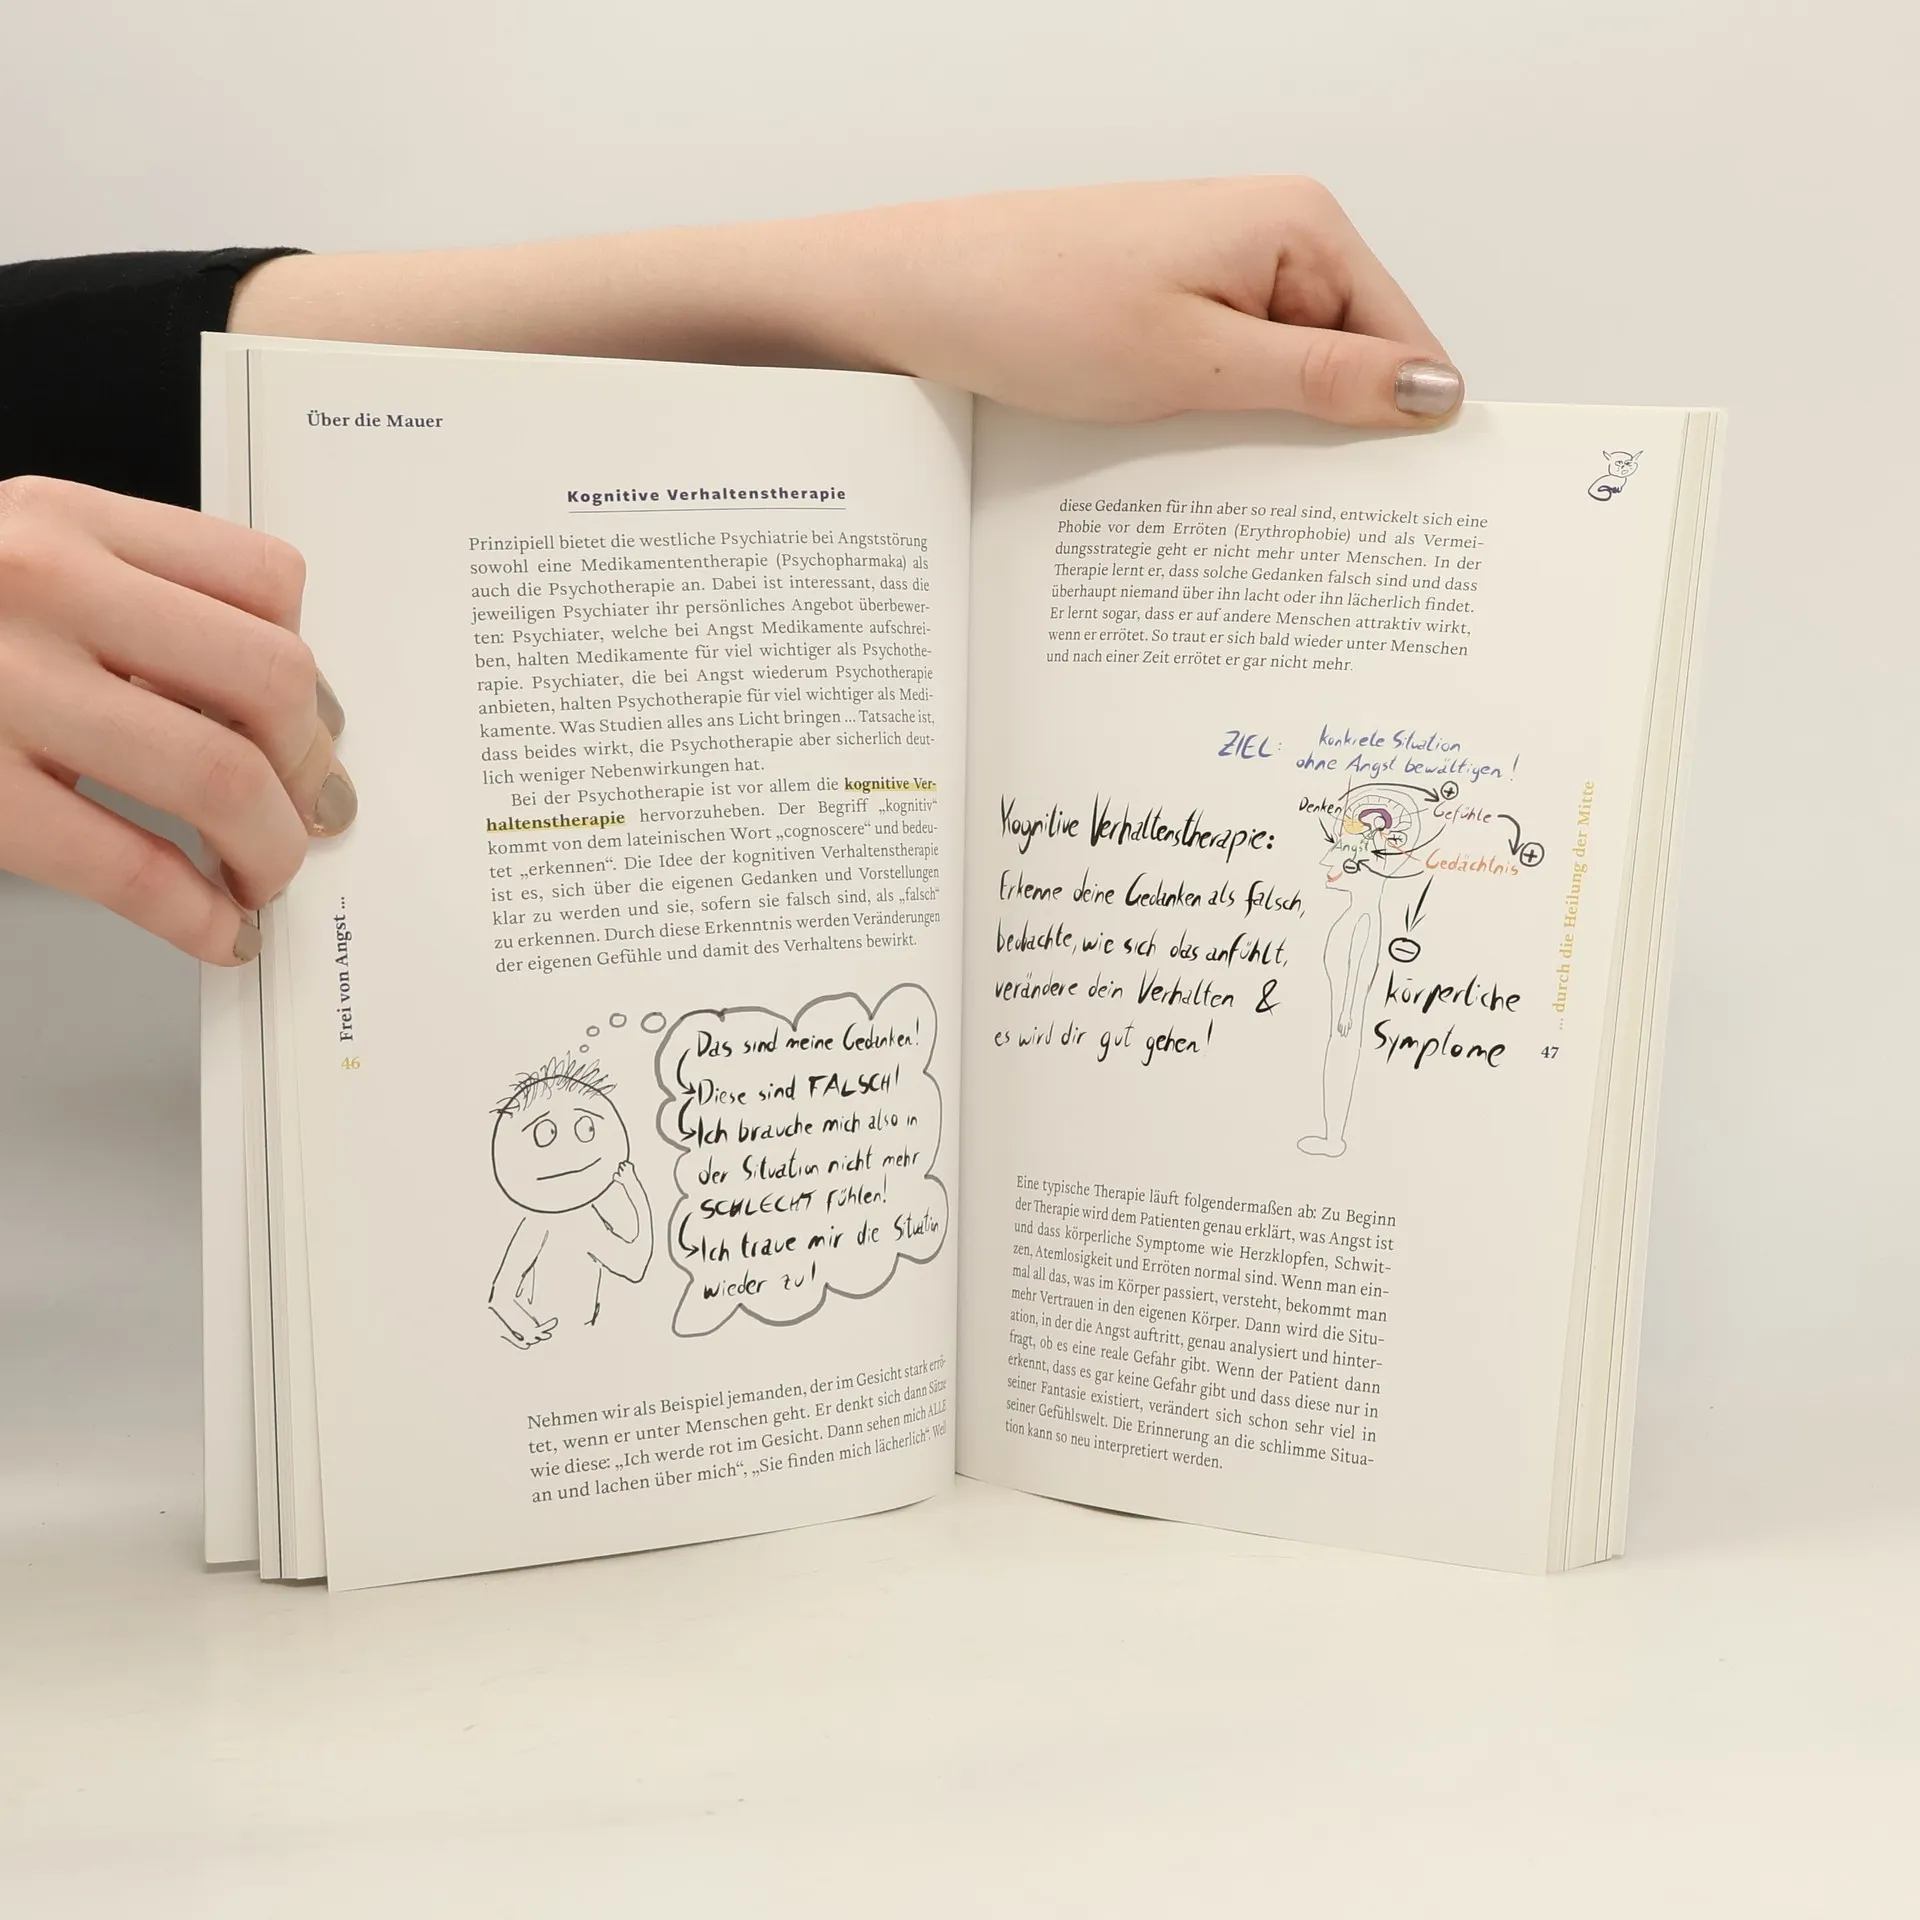 Über die Mauer
Kognitive Verhaltenstherapie
Prinzipiell bietet die westliche Psychiatrie bei Angststörung
sowohl eine Medikamententherapie (Psychopharmaka) als
auch die Psychotherapie an. Dabei ist interessant, dass die
jeweiligen Psychiater ihr persönliches Angebot überbewer-
ten: Psychiater, welche bei Angst Medikamente aufschrei-
ben, halten Medikamente für viel wichtiger als Psychothe-
rapie. Psychiater, die bei Angst wiederum Psychotherapie
anbieten, halten Psychotherapie für viel wichtiger als Medi-
kamente. Was Studien alles ans Licht bringen ... Tatsache ist,
dass beides wirkt, die Psychotherapie aber sicherlich deut-
lich weniger Nebenwirkungen hat.
Bei der Psychotherapie ist vor allem die kognitive Ver-
haltenstherapie hervorzuheben. Der Begriff „kognitiv“
kommt von dem lateinischen Wort „cognoscere“ und bedeu-
tet „erkennen“. Die Idee der kognitiven Verhaltenstherapie
ist es, sich über die eigenen Gedanken und Vorstellungen
klar zu werden und sie, sofern sie falsch sind, als „falsch“
zu erkennen. Durch diese Erkenntnis werden Veränderungen
der eigenen Gefühle und damit des Verhaltens bewirkt.
Das sind meine Gedanken!
Diese sind FALSCH!
Ich brauche mich also in
der Situation nicht mehr
SCHLECHT fühlen!
Ich traue mir die Situation
wieder zu!
Nehmen wir als Beispiel jemanden, der im Gesicht stark errö-
tet, wenn er unter Menschen geht. Er denkt sich dann Sätze
wie diese: „Ich werde rot im Gesicht. Dann sehen mich ALLE
an und lachen über mich“, „Sie finden mich lächerlich“. Weil
Frei von Angst ...
46
diese Gedanken für ihn aber so real sind, entwickelt sich eine
Phobie vor dem Erröten (Erythrophobie) und als Vermei-
dungsstrategie geht er nicht mehr unter Menschen. In der
Therapie lernt er, dass solche Gedanken falsch sind und dass
überhaupt niemand über ihn lacht oder ihn lächerlich findet.
Er lernt sogar, dass er auf andere Menschen attraktiv wirkt,
wenn er errötet. So traut er sich bald wieder unter Menschen
und nach einer Zeit errötet er gar nicht mehr.
ZIEL: konkrete Situation
ohne Angst bewältigen!
Kognitive Verhaltenstherapie:
Erkenne deine Gedanken als falsch,
beobachte, wie sich das anfühlt,
verändere dein Verhalten &
es wird dir gut gehen!
Denken
Gefühle
Angst
Gedächtnis
körperliche
Symptome
Eine typische Therapie läuft folgendermaßen ab: Zu Beginn
der Therapie wird dem Patienten genau erklärt, was Angst ist
und dass körperliche Symptome wie Herzklopfen, Schwit-
zen, Atemlosigkeit und Erröten normal sind. Wenn man ein-
mal all das, was im Körper passiert, versteht, bekommt man
mehr Vertrauen in den eigenen Körper. Dann wird die Situ-
ation, in der die Angst auftritt, genau analysiert und hinter-
fragt, ob es eine reale Gefahr gibt. Wenn der Patient dann
erkennt, dass es gar keine Gefahr gibt und dass diese nur in
seiner Fantasie existiert, verändert sich schon sehr viel in
seiner Gefühlswelt. Die Erinnerung an die schlimme Situa-
tion kann so neu interpretiert werden.
... durch die Heilung der Mitte
47